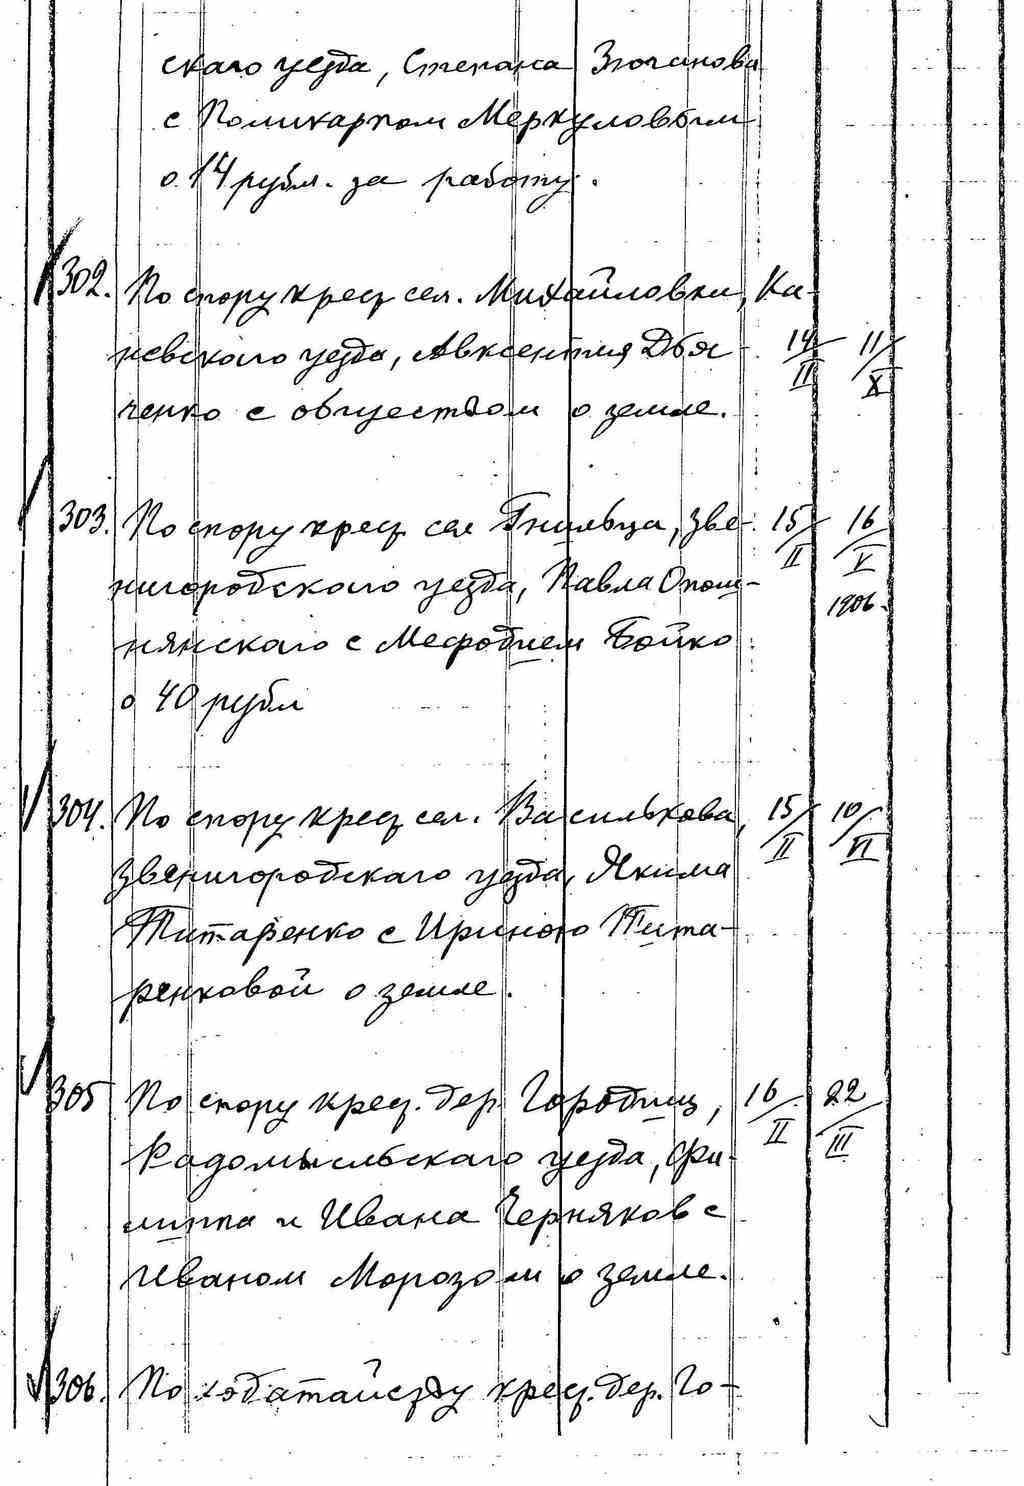 скаго уезда, Степана Зюганова
с Поликарпом Меркуловым
о 14 рубл. за работу.
302. По спору крес. сел. Михайловки, Ка-
невского уезда, Авксентия Дья- 14/II 11/X
ченко с обществом о земле.
303. По спору крес. сел Гнильца, Зве- 15/II 16/V
нигородского уезда, Павла Опош- 1906.
нянскаго с Мефодием Бойко
о 40 рубл
304. По спору крес. сел. Василькова, 15/II 10/VI
Звенигородскаго уезда, Якима
Титаренко с Ириною Тита-
ренковой о земле.
305 По спору крес. дер. Городищ, 16/II 22/III
Радомысльскаго уезда, Фи-
липпа и Ивана Черняков с
Иваном Морозом о земле.
306. По ходатайству крес. дер. Го-